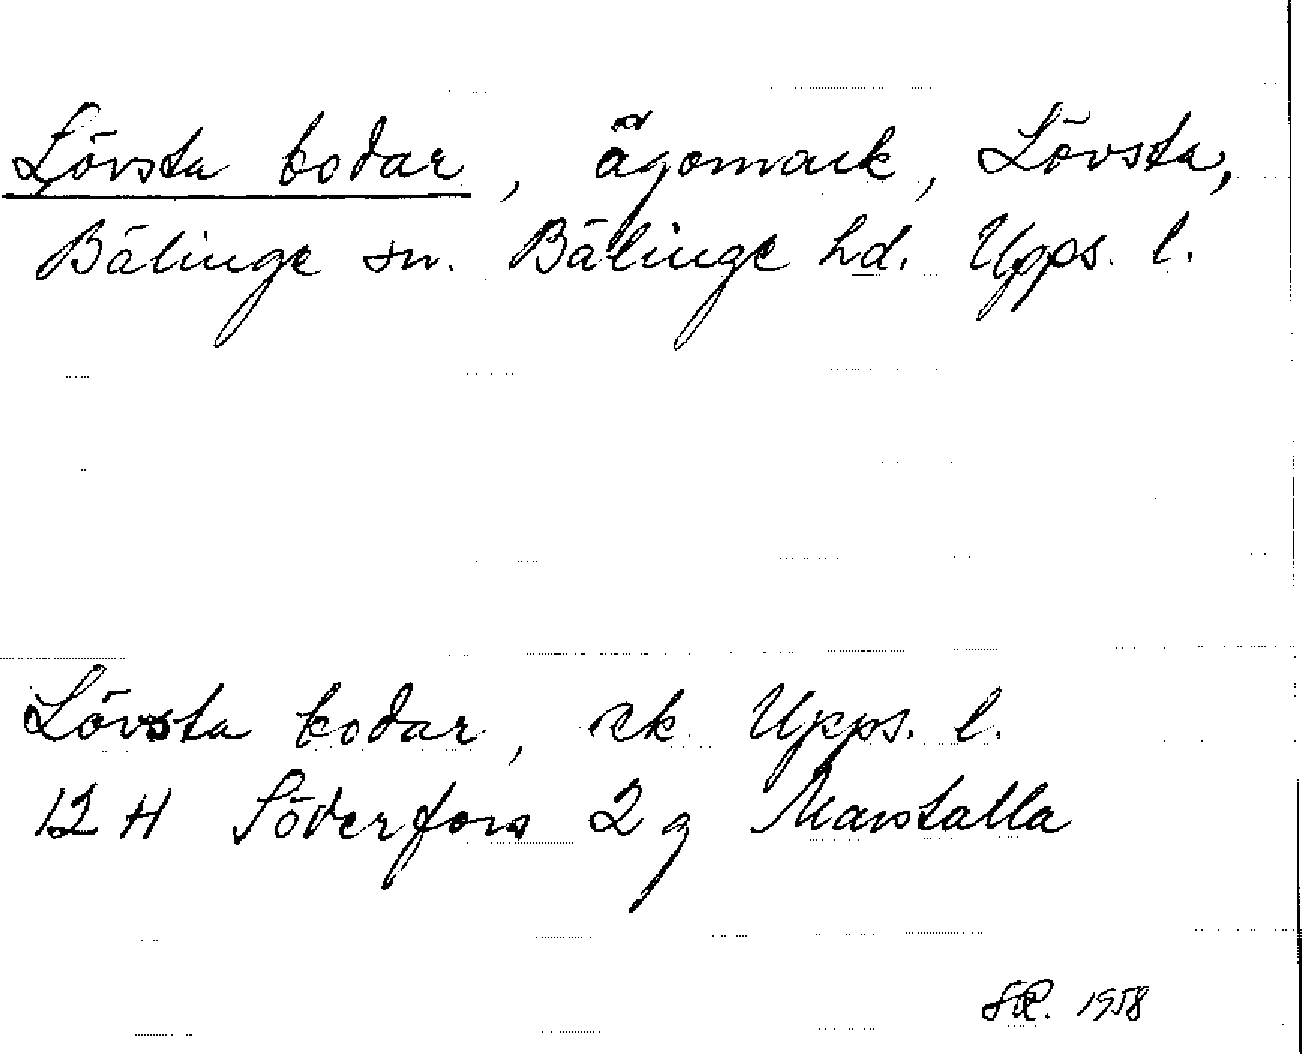 Lövsta bodar, ägomark, Lövsta,
Bälinge sn. Bälinge hd. Upps. l.
Lövsta bodar, ek Upps. l.
12 H Söderfors 2 g Marstalla
1958